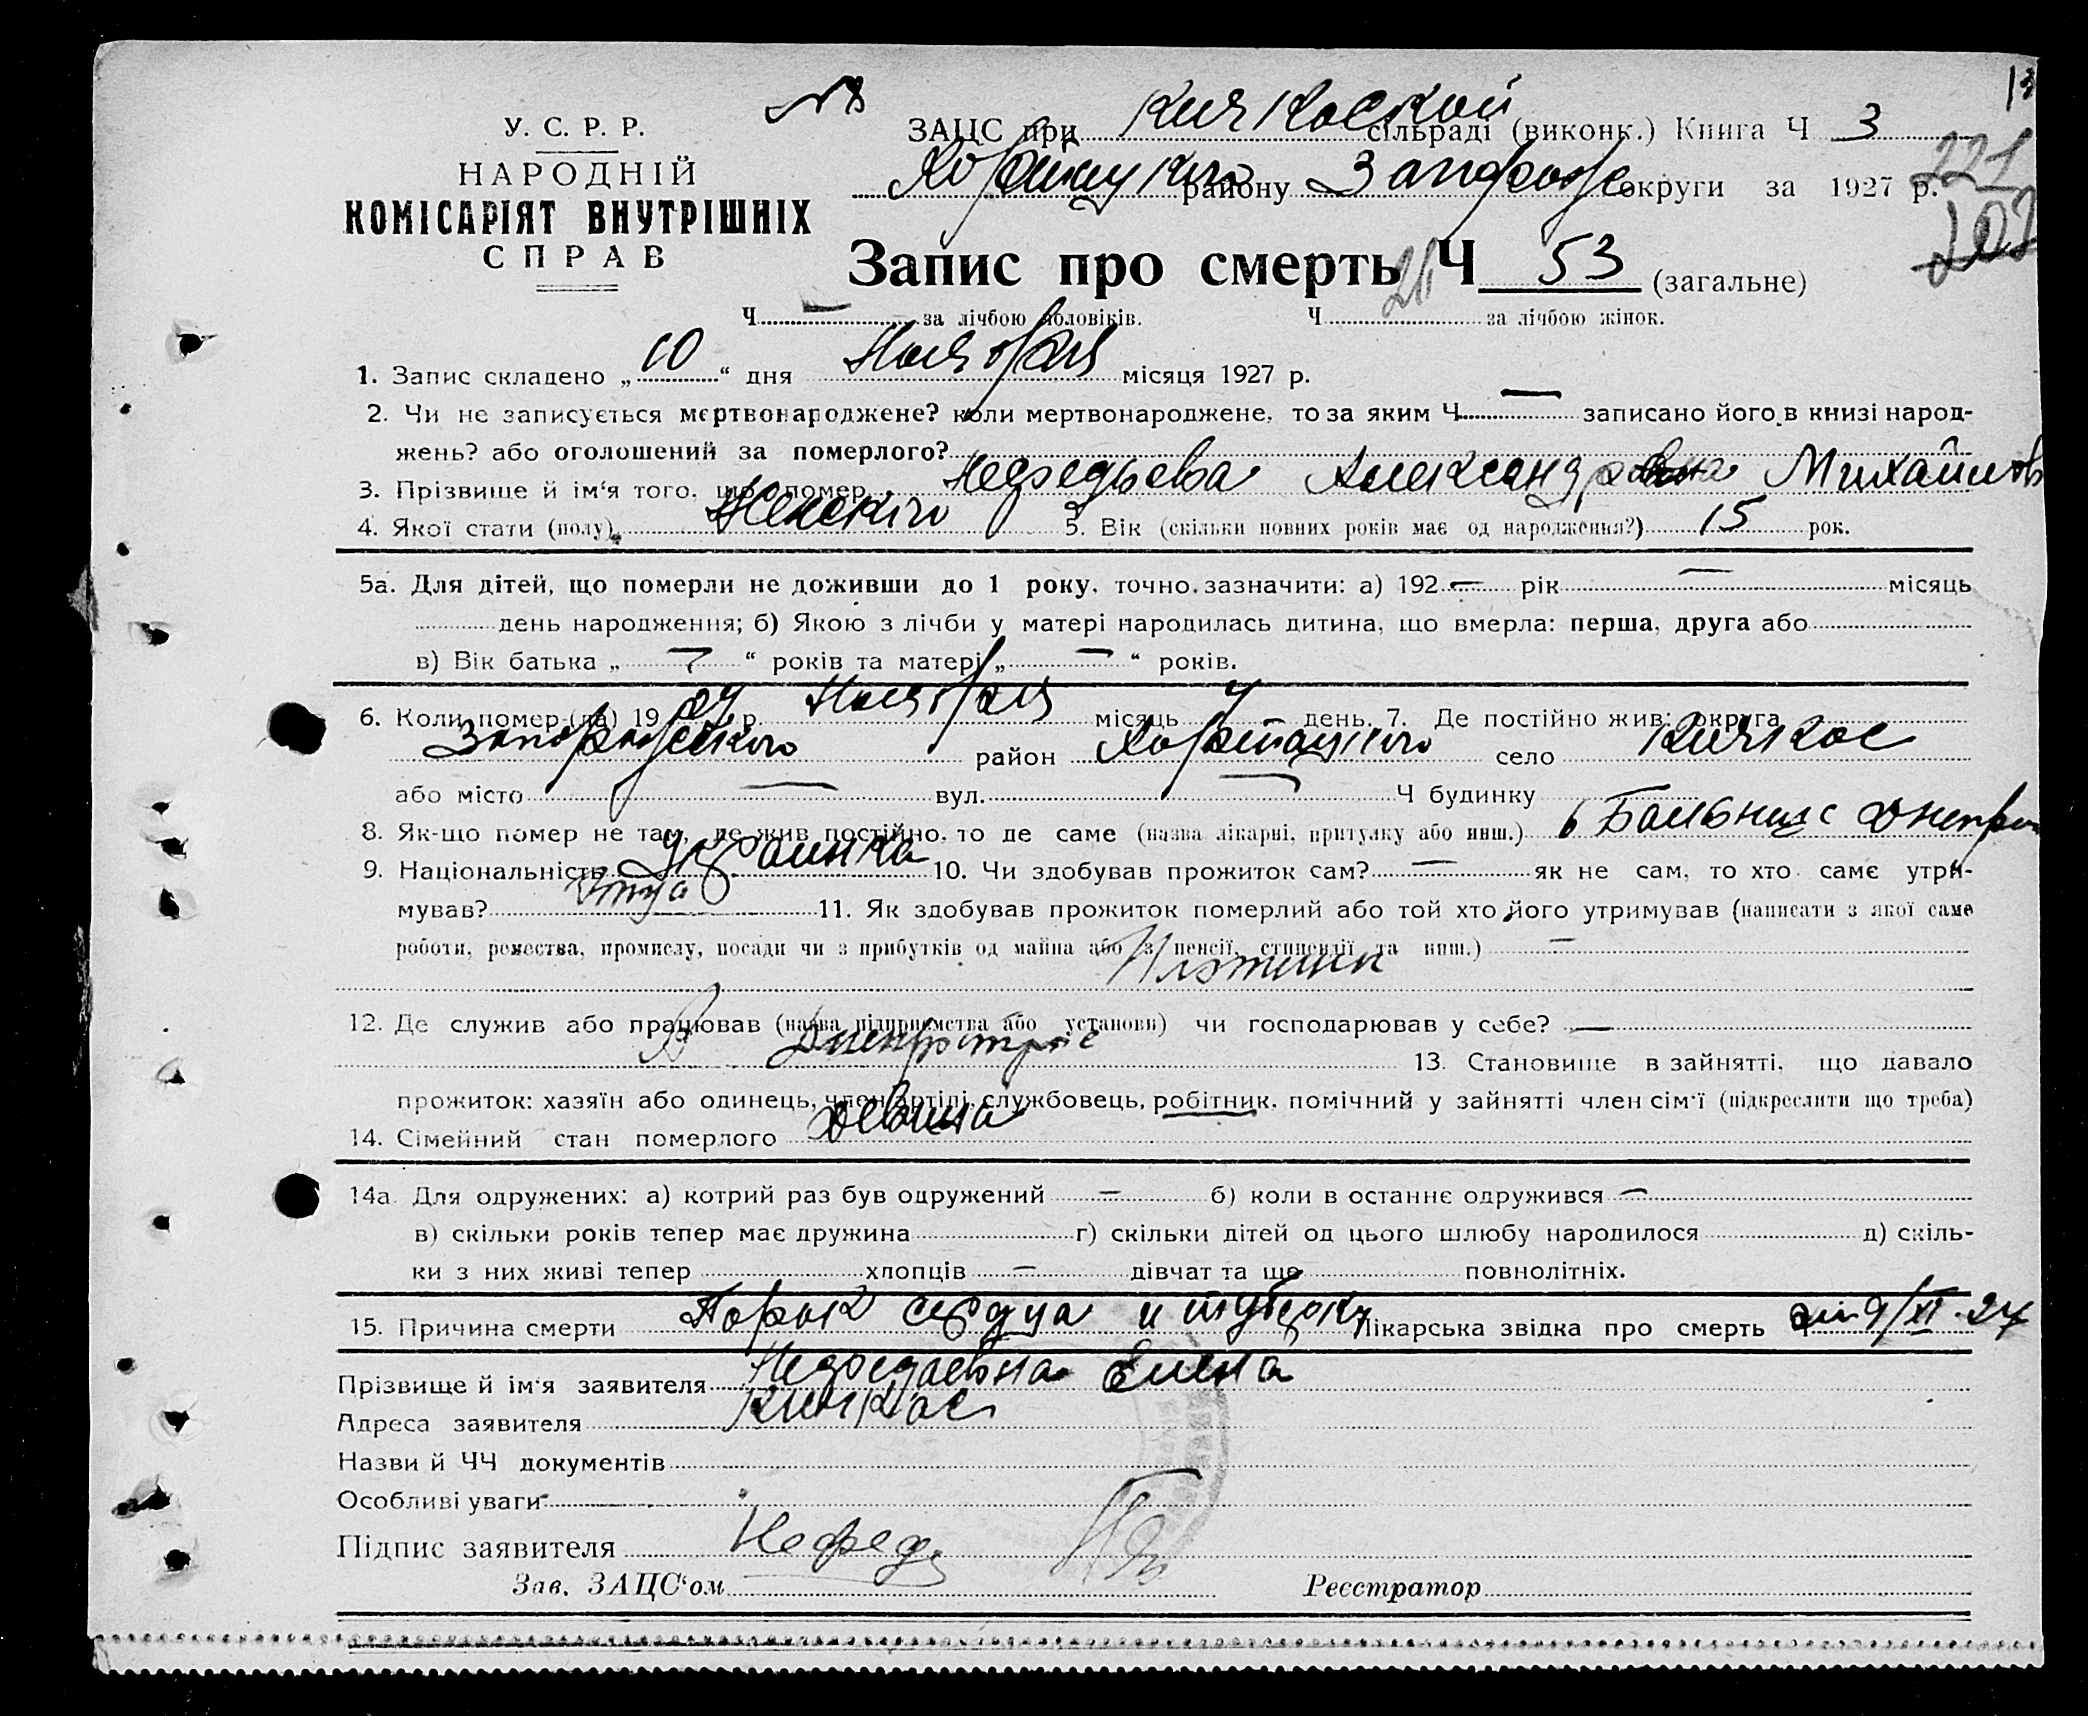 У. С. Р. Р.
НАРОДНІЙ
КОМІСАРІЯТ ВНУТРІШНІХ
СПРАВ
№8
13
ЗАЦС при Кичкаской сільраді (виконк.) Книга Ч 3
Хортицкого району Запорож округи за 1927 р.
221
Запис про смерть Ч 53 (загальне)
Ч — за лічбою чоловіків. Ч 21 за лічбою жінок.
1. Запис складено „ 10 “ дня Ноября місяця 1927 р.
2. Чи не записується мертвонароджене? коли мертвонароджене, то за яким Ч — записано його в книзі народ-
жень? або оголошений за померлого?
3. Прізвище й ім‘я того, що помер Нефедьева Александра Михайлов
4. Якої стати (полу) Женского 5. Вік (скільки повних років має од народження?) 15 рок.
5а. Для дітей, що померли не доживши до 1 року, точно зазначити: а) 192 — рік — місяць
день народження; б) Якою з лічби у матері народилась дитина, що вмерла: перша, друга або
в) Вік батька „ — “ років та матері „ — “ років.
6. Коли помер-(ла) 19 27 р. Ноября місяць 9 день. 7. Де постійно жив: округа
Запорожского район Хортицкого село Кичкас
або місто — вул. — Ч будинку
8. Як-що помер не там, де жив постійно, то де саме (назва лікарні, притулку або инш.) в Больнице Днепро
9. Національність Украинка 10. Чи здобував прожиток сам? — як не сам, то хто саме утри-
мував? Отца 11. Як здобував прожиток померлий або той хто його утримував (написати з якої саме
роботи, ремества, промислу, посади чи з прибутків од майна або з пенсії, стипендії та инш.) —
Плотник
12. Де служив або працював (назва підприємства або установи) чи господарював у себе? —
В Днепрострое 13. Становище в зайнятті, що давало
прожиток: хазяїн або одинець, член артілі, службовець, робітник, помічний у зайнятті член сім‘ї (підкреслити що треба)
14. Сімейний стан померлого девица
14а. Для одружених: а) котрий раз був одружений — б) коли в останнє одружився —
в) скільки років тепер має дружина г) скільки дітей од цього шлюбу народилося д) скіль-
ки з них живі тепер хлопців — дівчат та ще повнолітніх.
15. Причина смерти Порок сердца и туберку лікарська звідка про смерть от 9/XI-27
Прізвище й ім‘я заявителя Елена
Адреса заявителя Кичкас
Назви й ЧЧ документів
Особливі уваги
Підпис заявителя Нефед
Зав. ЗАЦС‘ом Реєстратор